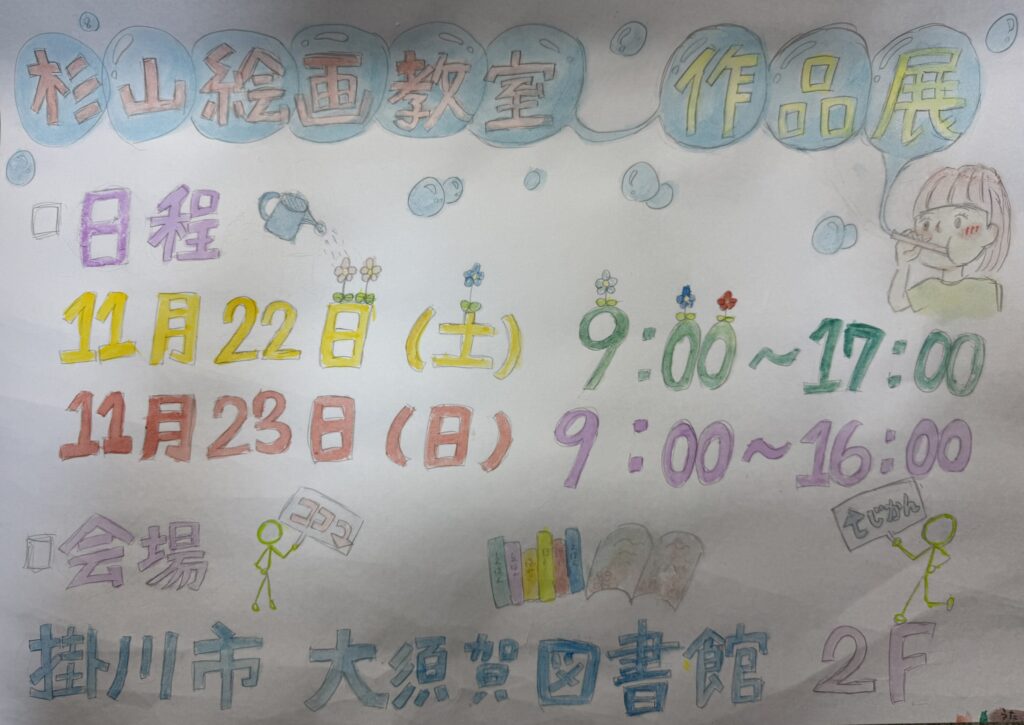 杉山絵画教室 作品展
□日程
11月22日(土) 9:00~17:00
11月23日(日) 9:00~16:00
□会場
ココマ
じかん
掛川市 大須賀図書館 2F